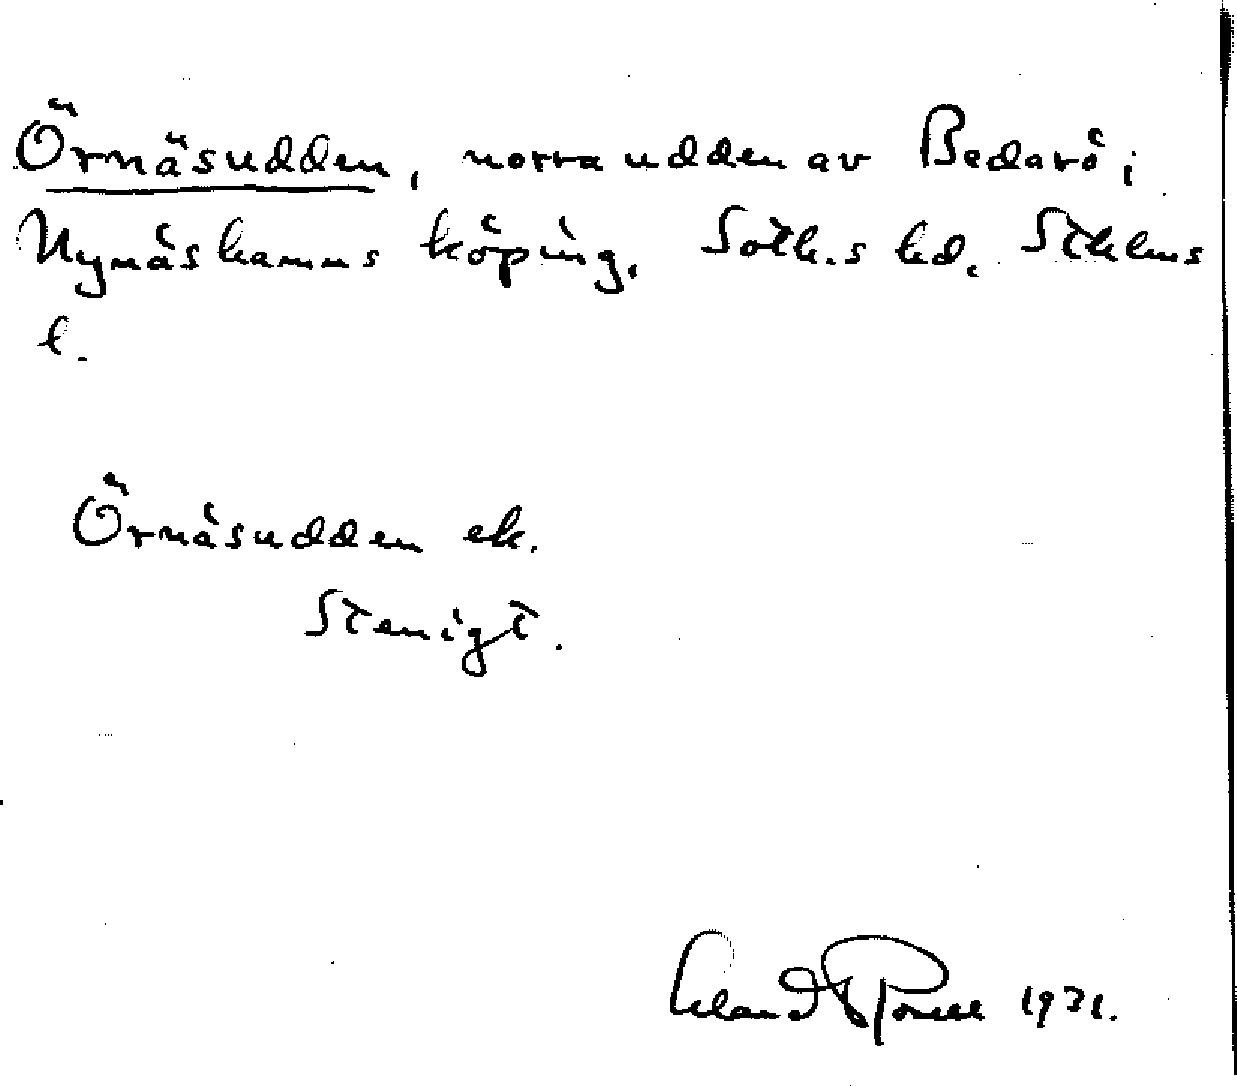 Örnäsudden, norra udden av Bedarö i
Nynäshamns köping, Soth.s hd. Sthlms
l.
Örnäsudden ek.
Stenigt.
1931.